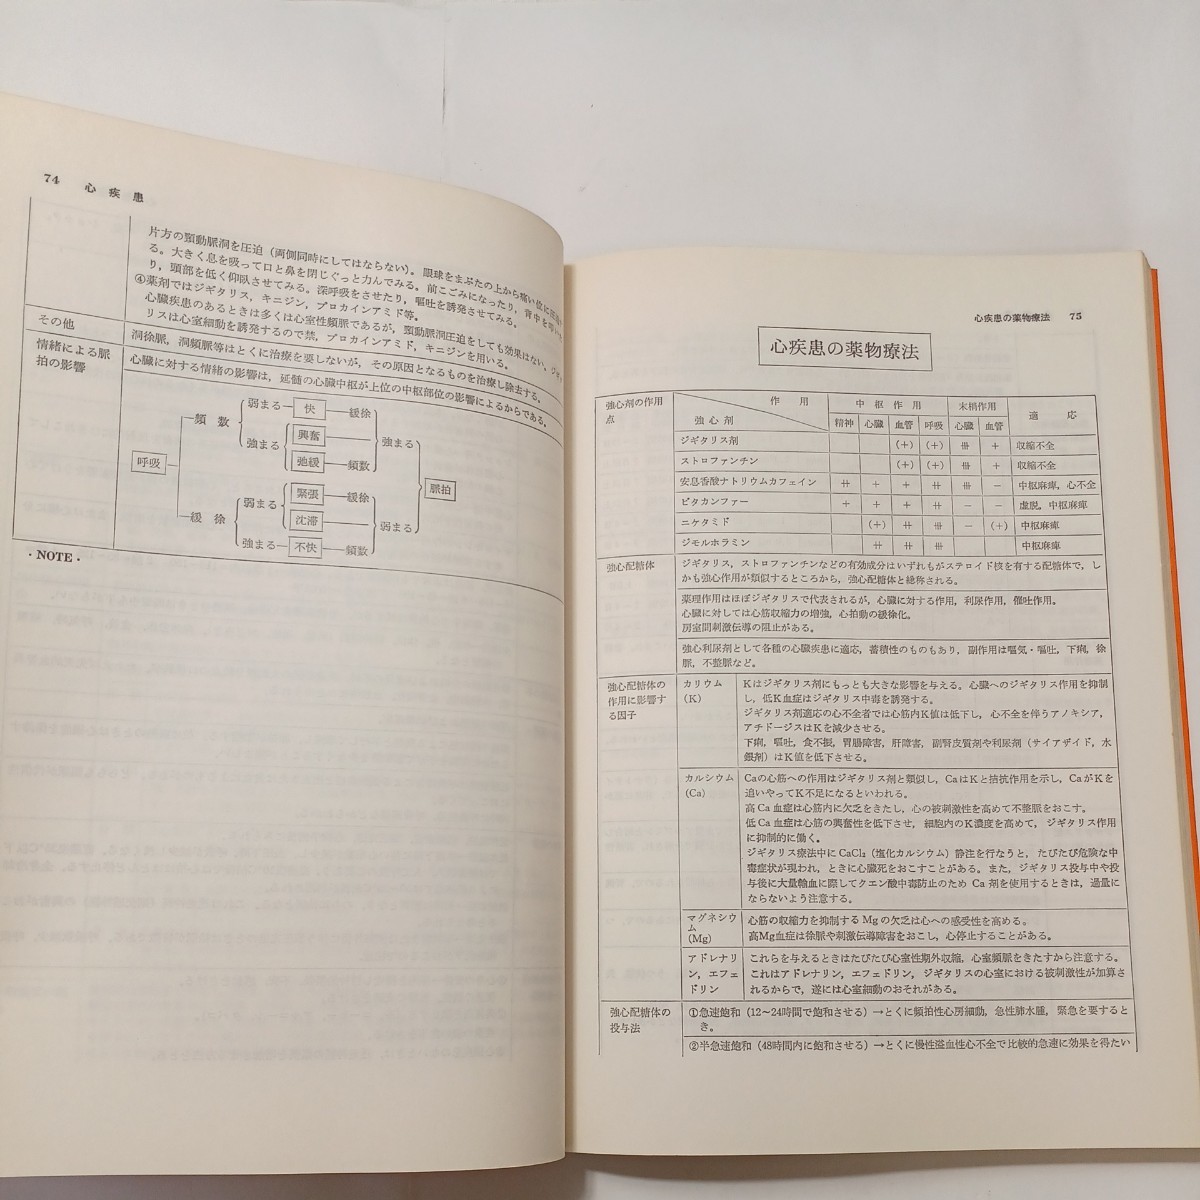 74 心疾患
片方の頸動脈洞を圧迫（両側同時にしてはならない）。眼球をまぶたの上から痛い位に圧迫す
る。大きく息を吸って口と鼻を閉じぐっと力んでみる。前こごみになったり，背中を
り，頭部を低く仰臥させてみる。深呼吸をさせたり，嘔吐を誘発させてみる。
④薬剤ではジギタリス，キニジン，プロカインアミド等。
心臓疾患のあるときは多くは心室性頻脈であるが，頸動脈洞圧迫をしても効果はない。ジギ
リスは心室細動を誘発するので禁，プロカインアミド，キニジンを用いる。
その他
洞徐脈，洞頻脈等はとくに治療を要しないが，その原因となるものを治療し除去する。
情緒による脈
拍の影響
心臓に対する情緒の影響は，延髄の心臓中枢が上位の中枢部位の影響によるからである。
弱まる 快 緩徐
頻数
興奮
強まる 強まる
弛緩 頻数
呼吸
脈拍
緊張 緩徐
弱まる
沈滞
緩徐 弱まる
強まる 不快 頻数
・NOTE・
心疾患の薬物療法 75
心疾患の薬物療法
強心剤の作用
点
作用
強心剤
中枢作用
末梢作用
適応
精神 心臓 血管 呼吸 心臓 血管
ジギタリス剤 (+) (+) 卌 + 収縮不全
ストロファンチン (+) (+) 卌 + 収縮不全
安息香酸ナトリウムカフェイン 卄 + + 卄 卌 − 中枢麻痺，心不全
ビタカンファー + + + 卄 − − 虚脱，中枢麻痺
ニケタミド (+) 卄 卌 − (+) 中枢麻痺
ジモルホラミン 卄 卄 卌 中枢麻痺
強心配糖体
ジギタリス，ストロファンチンなどの有効成分はいずれもがステロイド核を有する配糖体で，し
かも強心作用が類似するところから，強心配糖体と総称される。
薬理作用はほぼジギタリスで代表されるが，心臓に対する作用，利尿作用，催吐作用。
心臓に対しては心筋収縮力の増強，心拍動の緩徐化。
房室間刺激伝導の阻止がある。
強心利尿剤として各種の心臓疾患に適応，蓄積性のものもあり，副作用は嘔気・嘔吐，下痢，徐
脈，不整脈など。
強心配糖体の
作用に影響す
る因子
カリウム
(K)
Kはジギタリス剤にもっとも大きな影響を与える。心臓へのジギタリス作用を抑制
し，低K血症はジギタリス中毒を誘発する。
ジギタリス剤適応の心不全者では心筋内K値は低下し，心不全を伴うアノキシア，
アチドージスはKを減少させる。
下痢，嘔吐，食不振，胃腸障害，肝障害，副腎皮質剤や利尿剤（サイアザイド，水
銀剤）はK値を低下させる。
カルシウム
(Ca)
Caの心筋への作用はジギタリス剤と類似し，CaはKと拮抗作用を示し，CaがKを
追いやってK不足になるといわれる。
高Ca血症は心筋内に欠乏をきたし，心の被刺激性を高めて不整脈をおこす。
低Ca血症は心筋の興奮性を低下させ，細胞内のK濃度を高めて，ジギタリス作用
に抑制的に働く。
ジギタリス療法中にCaCl₂（塩化カルシウム）静注を行なうと，たびたび危険な中
毒症状が現われ，ときに心臓死をおこすことがある。また，ジギタリス投与中や投
与後に大量輸血に際してクエン酸中毒防止のため Ca 剤を使用するときは，過量に
ならないよう注意する。
マグネシウ
ム
(Mg)
心筋の収縮力を抑制する Mg の欠乏は心への感受性を高める。
高Mg血症は徐脈や刺激伝導障害をおこし，心停止することがある。
アドレナリ
ン，エフェ
ドリン
これらを与えるときはたびたび心室性期外収縮，心室頻脈をきたすから注意する。
これはアドレナリン，エフェドリン，ジギタリスの心室における被刺激性が加算さ
れるからで，遂には心室細動のおそれがある。
強心配糖体の
投与法
①急速飽和（12〜24時間で飽和させる）→とくに頻拍性心房細動，急性肺水腫，緊急を要すると
き。
②半急速飽和（48時間内に飽和させる）→とくに慢性溢血性心不全で比較的急速に効果を得たい